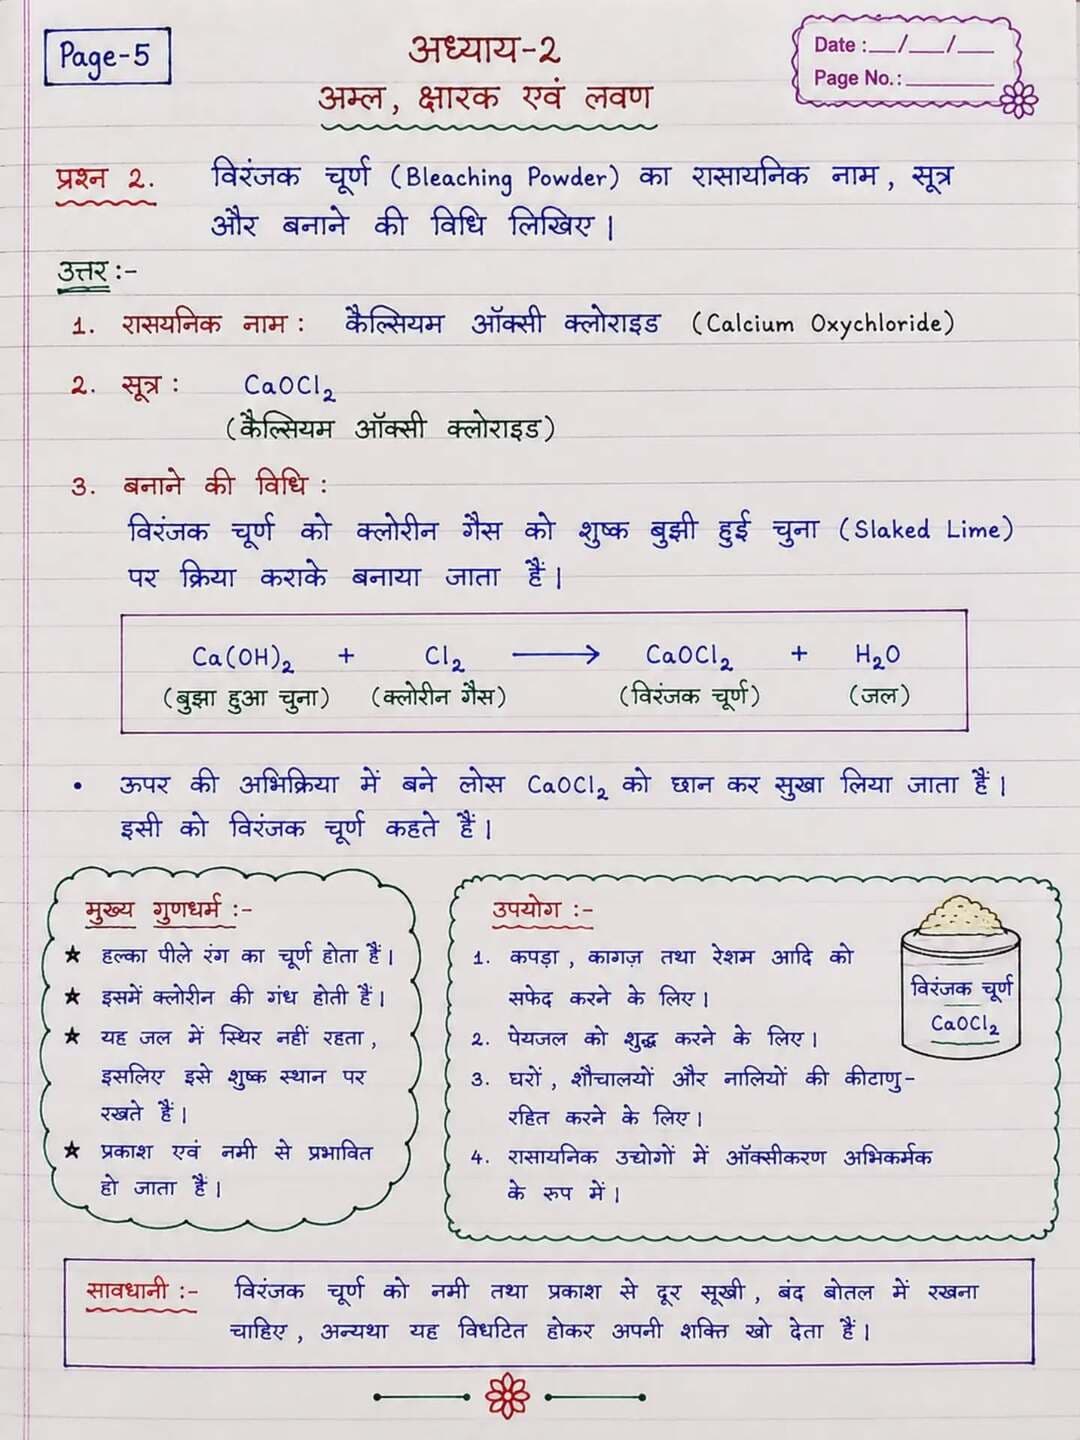 Page-5
अध्याय-2
अम्ल, क्षारक एवं लवण
Date :__/__/__
Page No.:________
प्रश्न 2. विरंजक चूर्ण (Bleaching Powder) का रासायनिक नाम, सूत्र
और बनाने की विधि लिखिए।
उत्तर :-
1. रासयनिक नाम : कैल्सियम ऑक्सी क्लोराइड (Calcium Oxychloride)
2. सूत्र : CaOCl₂
(कैल्सियम ऑक्सी क्लोराइड)
3. बनाने की विधि :
विरंजक चूर्ण को क्लोरीन गैस को शुष्क बुझी हुई चुना (Slaked Lime)
पर क्रिया कराके बनाया जाता हैं।
Ca(OH)₂ + Cl₂ ⟶ CaOCl₂ + H₂O
(बुझा हुआ चुना) (क्लोरीन गैस) (विरंजक चूर्ण) (जल)
• ऊपर की अभिक्रिया में बने लोस CaOCl₂ को छान कर सुखा लिया जाता हैं।
इसी को विरंजक चूर्ण कहते हैं।
मुख्य गुणधर्म :-
★ हल्का पीले रंग का चूर्ण होता हैं।
★ इसमें क्लोरीन की गंध होती हैं।
★ यह जल में स्थिर नहीं रहता,
इसलिए इसे शुष्क स्थान पर
रखते हैं।
★ प्रकाश एवं नमी से प्रभावित
हो जाता हैं।
उपयोग :-
1. कपड़ा, कागज़ तथा रेशम आदि को
सफेद करने के लिए।
2. पेयजल को शुद्ध करने के लिए।
3. घरों, शौचालयों और नालियों की कीटाणु-
रहित करने के लिए।
4. रासायनिक उद्योगों में ऑक्सीकरण अभिकर्मक
के रुप में।
विरंजक चूर्ण
CaOCl₂
सावधानी :- विरंजक चूर्ण को नमी तथा प्रकाश से दूर सूखी, बंद बोतल में रखना
चाहिए, अन्यथा यह विघटित होकर अपनी शक्ति खो देता हैं।